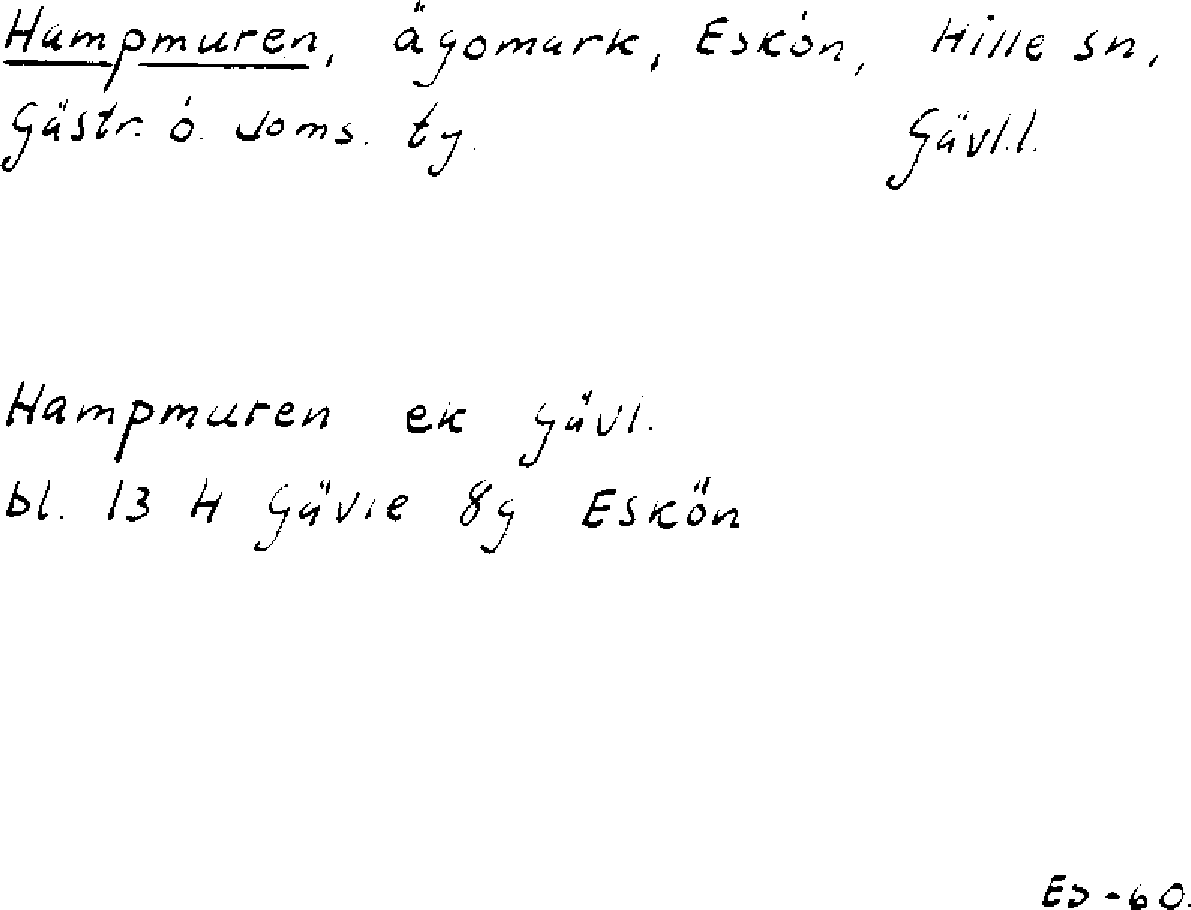 Hampmuren, ägomark, Eskön, Hille sn,
Gästr. ö. doms. ty. Gävl.l.
Hampmuren ek Gävl.
bl. 13 H Gävle 8g Eskön
ES-60.